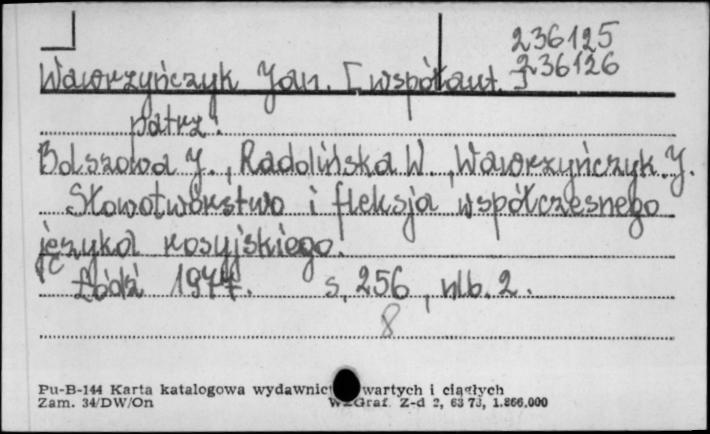 236125
Wawrzyńczyk Jan. [współaut.]
236126
patrz:
Bolszowa J., Radolińska W., Wawrzyńczyk J.
Słowotwórstwo i fleksja współczesnego
języka rosyjskiego.
Łódź 1977. s. 256, nlb. 2.
8
Pu-B-144 Karta katalogowa wydawnict wartych i ciągłych
Zam. 34/DW/On Graf. Z-d 2, 63 73, 1.866.000